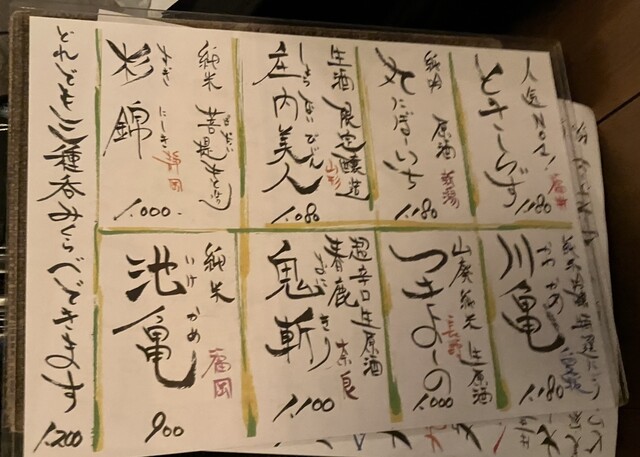 人気No.1!
ときしらず
福井
1,180
純米 原酒 新潟
丸に
1,180
生酒 限定醸造
しょうないびじん
庄内美人
山形
1,080
純米 菩提もと
ぼだい
すぎ にしき
杉錦
静岡
1,000
かわ かめ
川亀
1,180
山廃純米 生原酒
長野
つきよしの
1,000
超辛口生原酒
春鹿 奈良
おに きり
鬼斬
1,100
純米
いけ かめ
池亀
福岡
900
どれでも三種呑みくらべできます
1,200